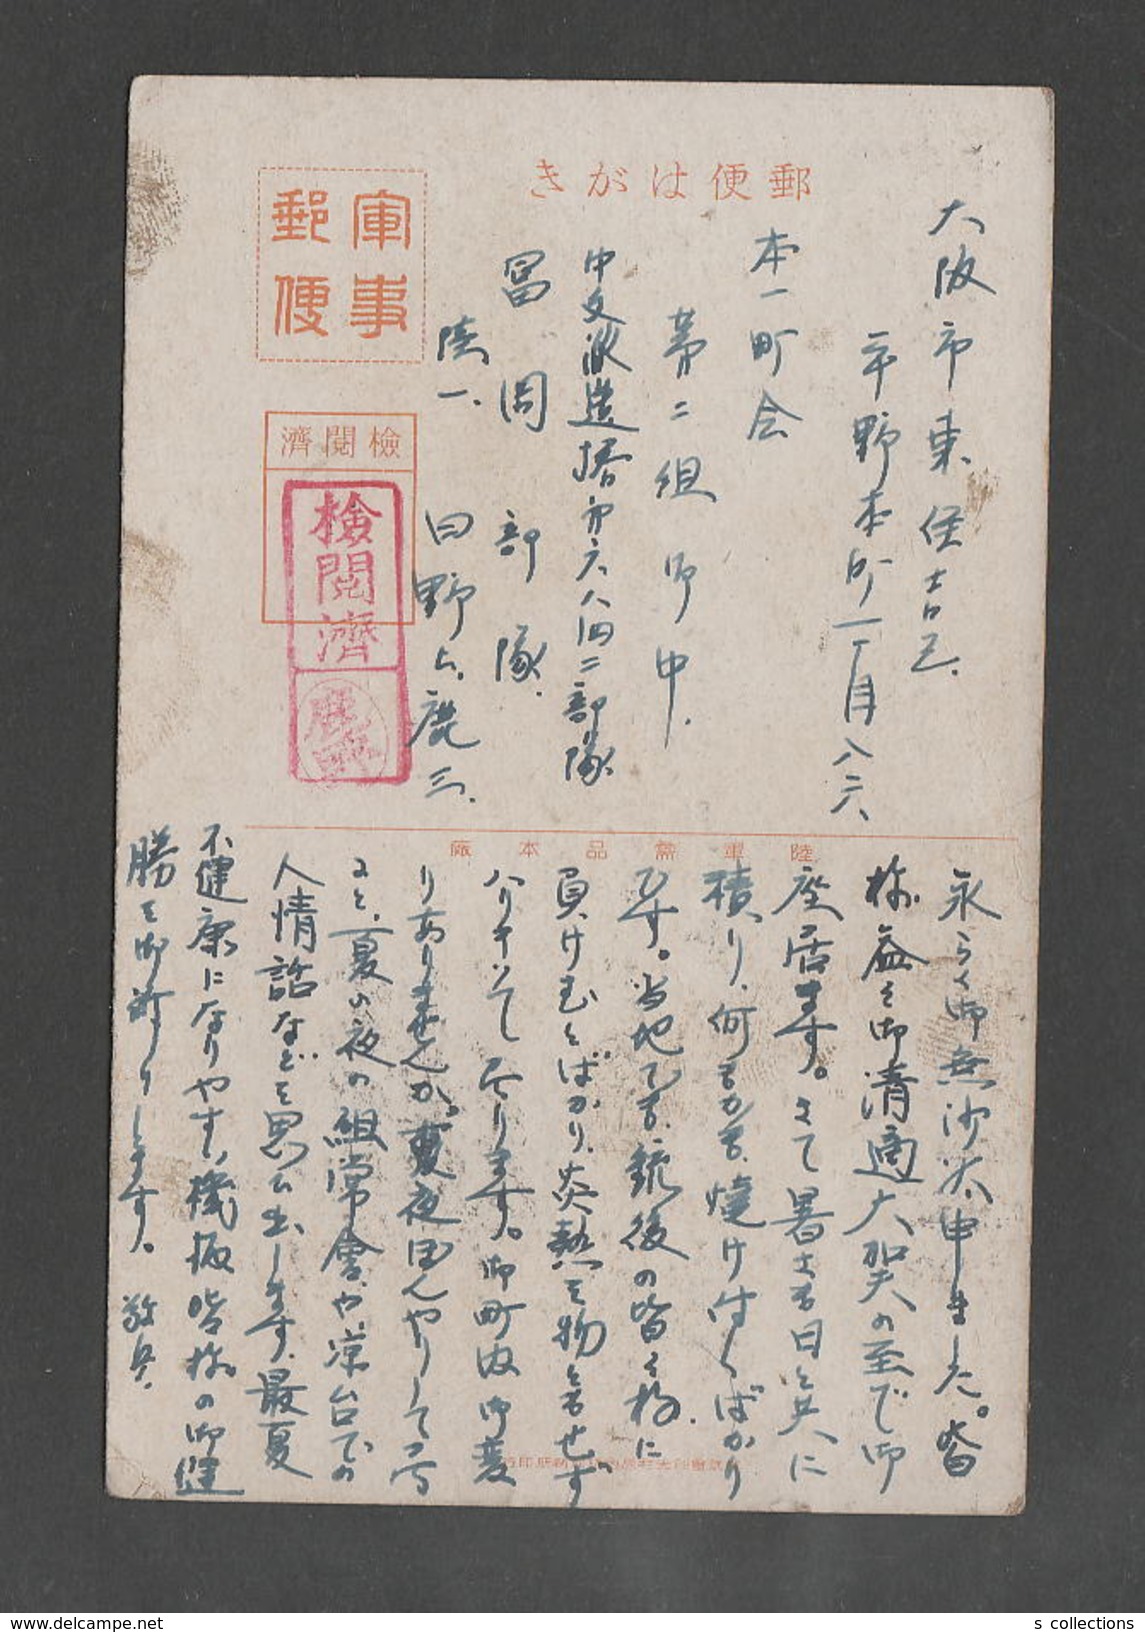 郵便はがき
軍事
郵便
檢閲濟
檢閲濟
大阪市東住吉区
平野本町一丁目八六
本一町会
第二組御中
中支派遣播市六八四二部隊
冨岡部隊
陸一、
日野上鹿三
陸軍需品本廠
永らく御無沙汰申ました。皆
様益々御清適大賀の至で御
座居ます。さて暑さも日と共に
積り、何もかも、焼け付くばかり
です。当地でも銃後の皆々様に
負けむとばかり、炎熱を物ともせず
ハリキッて居ります。御町内御変
りありませんか。夏夜田んやりして
ると、夏の夜の組常會や凉台での
人情話などを思ひ出します、最夏
不健康になりやすい機皈皆様の御健
勝を御祈りします。敬具
s collections